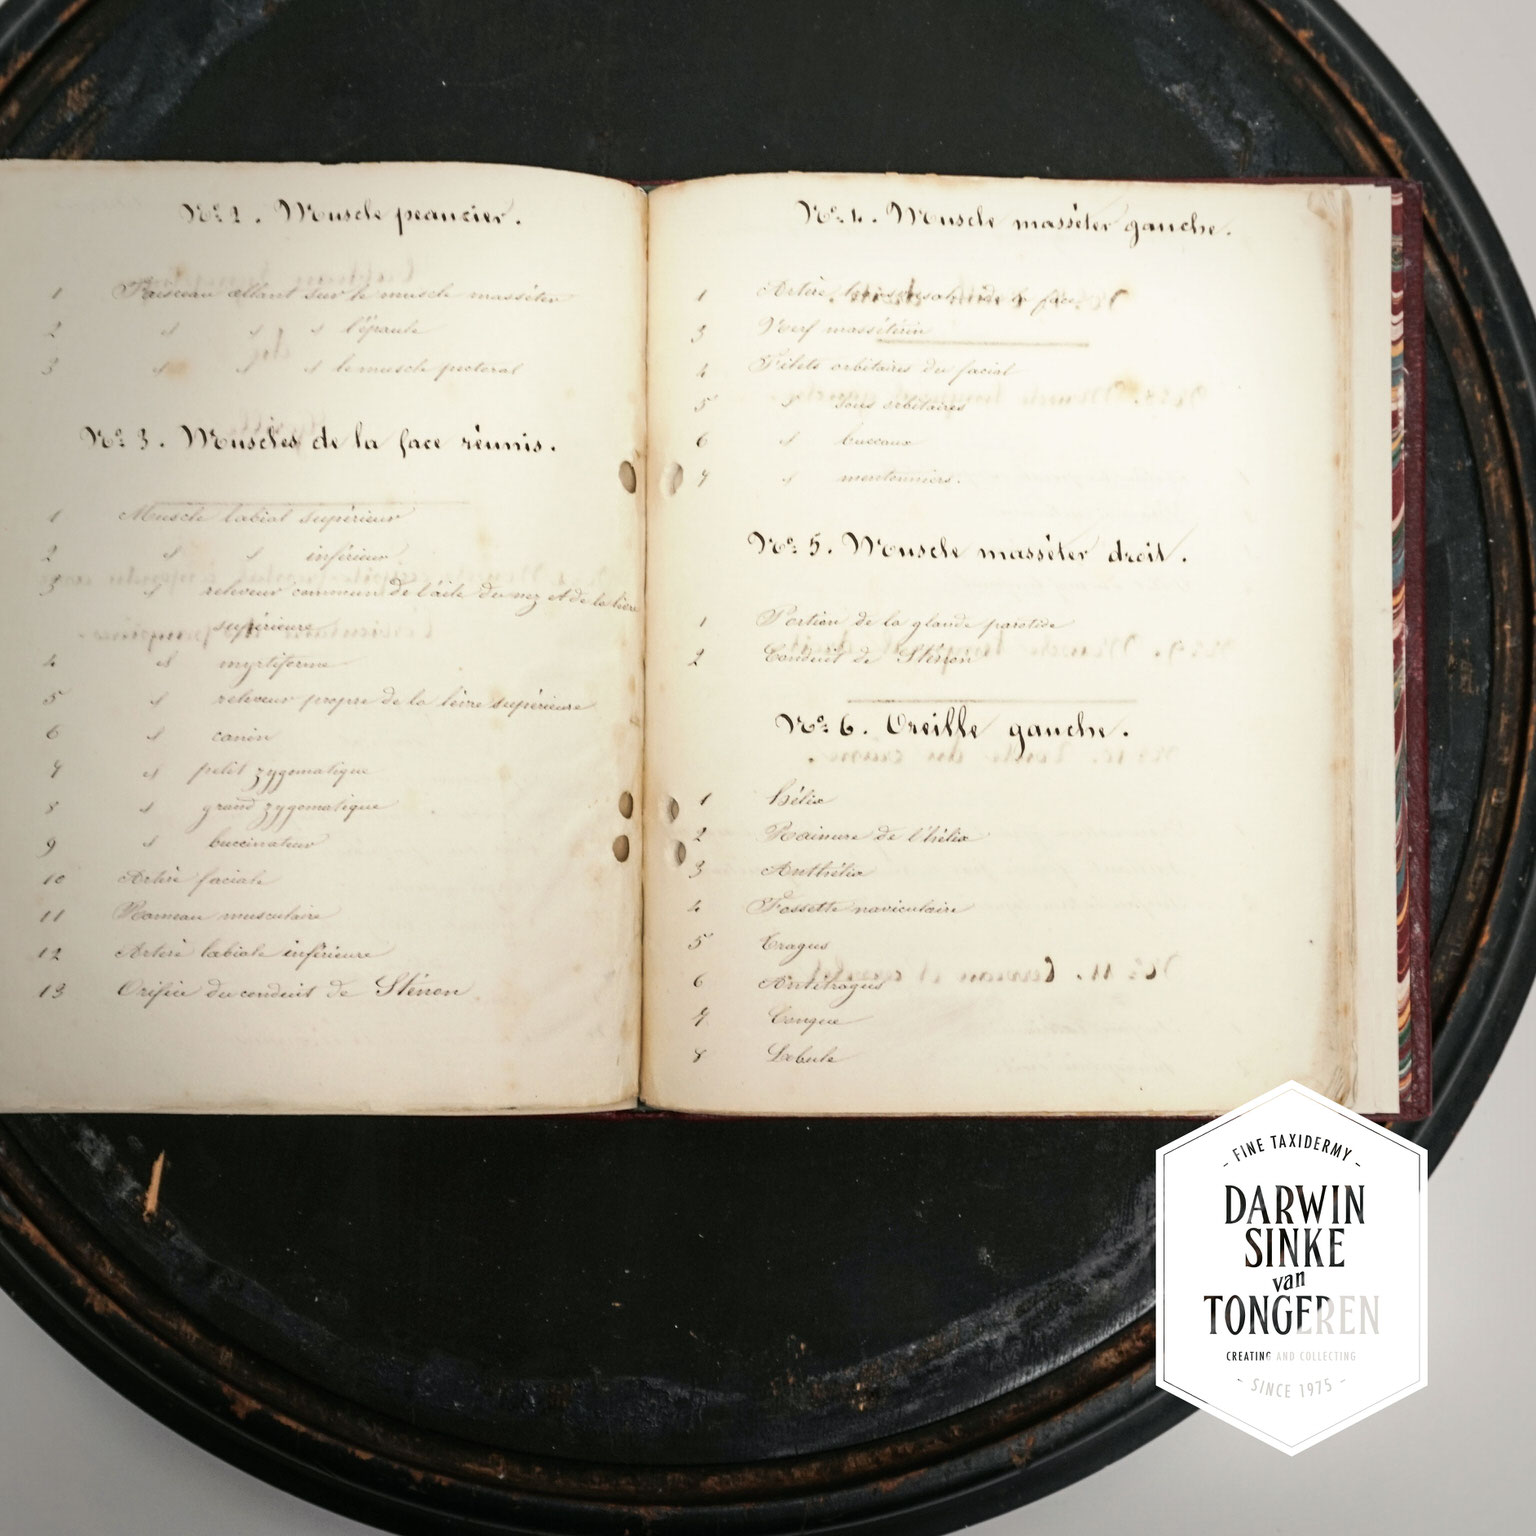 Nº 2. Muscle peaucier.
1 Faisceau allant sur le muscle masséter
2 d d d l'épaule
3 d d d le muscle pectoral
Nº 3. Muscles de la face réunis.
1 Muscle labial supérieur
2 d d inférieur
3 d releveur commun de l'aile du nez et de la lèvre
supérieure
4 d myrtiforme
5 d releveur propre de la lèvre supérieure
6 d canin
7 d petit zygomatique
8 d grand zygomatique
9 d buccinateur
10 Artère faciale
11 Rameau musculaire
12 Artère labiale inférieure
13 Orifice du conduit de Sténon
Nº 4. Muscle masséter gauche.
1 Artère transversale de la face
3 Nerf massétérin
4 Filets orbitaires du facial
5 d sous orbitaires
6 d buccaux
7 d mentonniers.
Nº 5. Muscle masséter droit.
1 Portion de la glande parotide
2 Conduit de Sténon
Nº 6. Oreille gauche.
1 hélix
2 Rainure de l'hélix
3 Anthélix
4 Fossette naviculaire
5 Tragus
6 Antitragus
7 Conque
8 Lobule
- FINE TAXIDERMY -
DARWIN
SINKE
van
TONGEREN
CREATING AND COLLECTING
- SINCE 1975 -